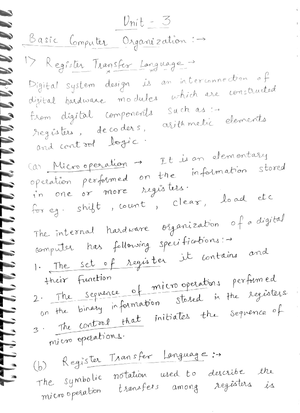 Unit - 3
Basic Computer Organization :→
1) Register Transfer Language →
Digital system design is an interconnection of
digital hardware modules which are constructed
from digital components such as :-
registers, decoders, arithmetic elements
and control logic.
(a) Microoperation → It is an elementary
operation performed on the information stored
in one or more registers.
for eg. shift, count, clear, load etc
The internal hardware organization of a digital
computer has following specifications :→
1. The set of register it contains and
their function
2. The sequence of micro operations performed
on the binary information stored in the registers
3. The control that initiates the sequence of
micro operations.
(b) Register Transfer Language :→
The symbolic notation used to describe the
micro operation transfers among registers is